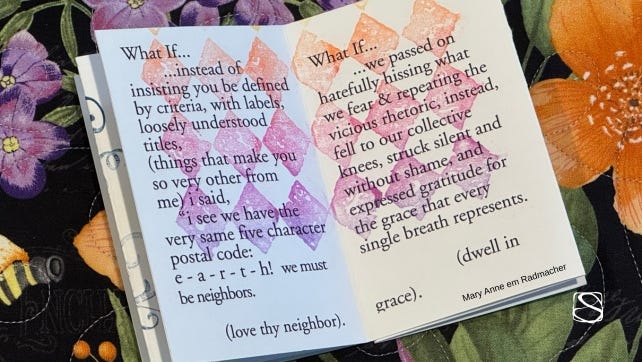 What If...
...instead of
insisting you be defined
by criteria, with labels,
loosely understood
titles,
(things that make you
so very other from
me) i said,
"i see we have the
very same five character
postal code:
e - a - r - t - h! we must
be neighbors.
(love thy neighbor).
What If...
...we passed on
hatefully hissing what
we fear & repeating the
vicious rhetoric, instead,
fell to our collective
knees, struck silent and
without shame, and
expressed gratitude for
the grace that every
single breath represents.
(dwell in
grace).
Mary Anne em Radmacher